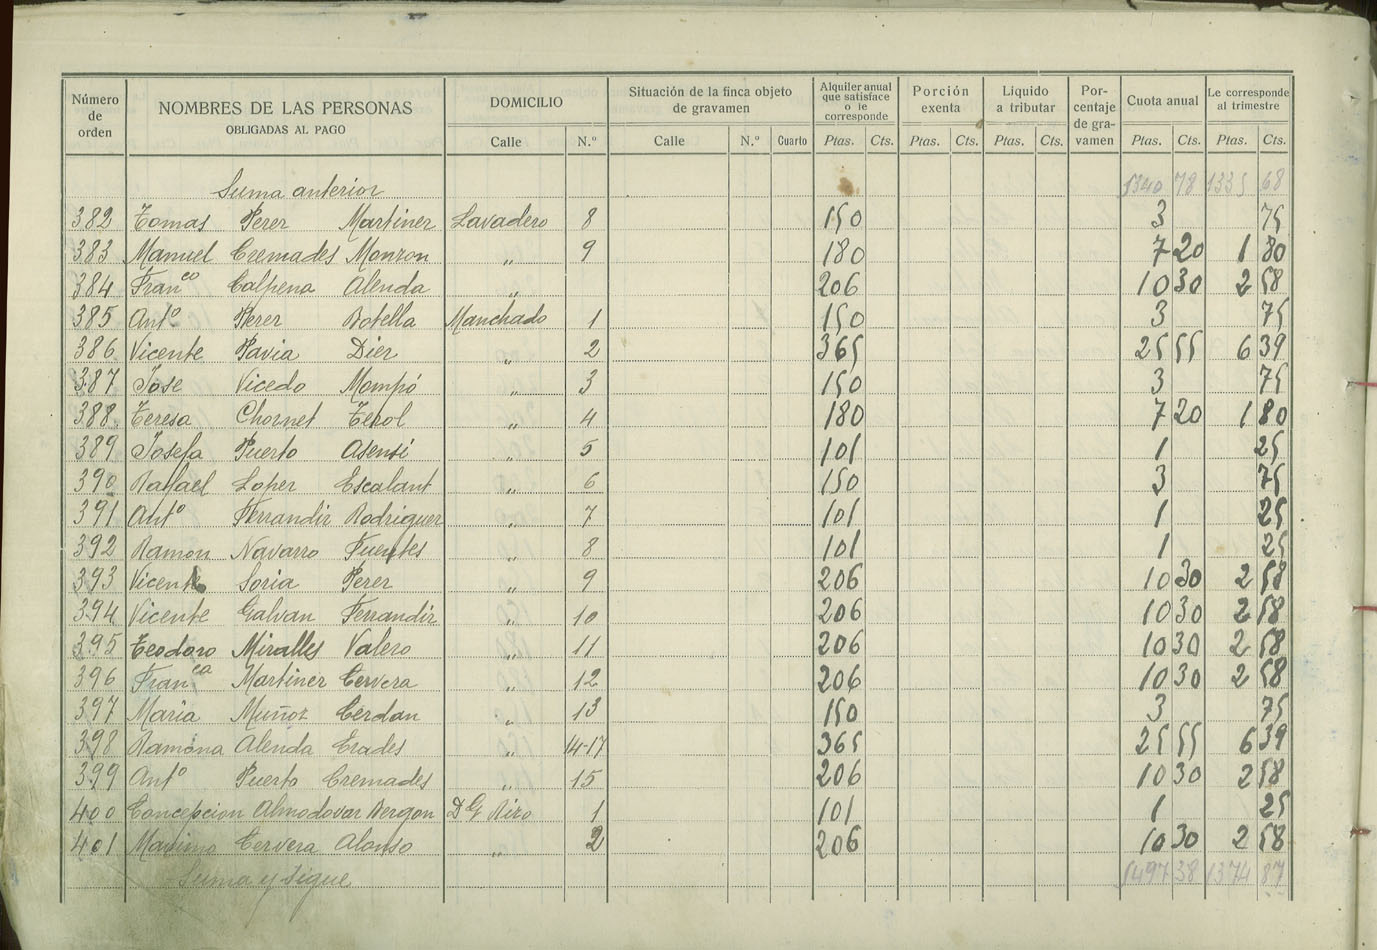 Número de orden | NOMBRES DE LAS PERSONAS OBLIGADAS AL PAGO | DOMICILIO | Situación de la finca objeto de gravamen | Alquiler anual que satisface o le corresponde | Porción exenta | Líquido a tributar | Por-centaje de gra-vamen | Cuota anual | Le corresponde al trimestre
Calle | N.º | Calle | N.º | Cuarto | Ptas. | Cts. | Ptas. | Cts. | Ptas. | Cts. | Ptas. | Cts. | Ptas. | Cts.
Suma anterior 5340 78 1335 68
382 Tomas Perez Martinez Lavadero 8 150 3 75
383 Manuel Cremades Monzon " 9 180 7 20 1 80
384 Franco Calpena Alenda " 206 10 30 2 58
385 Anto Perez Botella Manchado 1 150 3 75
386 Vicente Pavia Diez " 2 365 25 55 6 39
387 Jose Vicedo Mompó " 3 150 3 75
388 Teresa Chornet Terol " 4 180 7 20 1 80
389 Josefa Puerto Asensi " 5 101 1 25
390 Rafael Lopez Escalant " 6 150 3 75
391 Anto Ferrandiz Rodriguez " 7 101 1 25
392 Ramon Navarro Fuentes " 8 101 1 25
393 Vicente Soria Perez " 9 206 10 30 2 58
394 Vicente Galvan Ferrandiz " 10 206 10 30 2 58
395 Teodoro Miralles Valero " 11 206 10 30 2 58
396 Franca Martinez Cervera " 12 206 10 30 2 58
397 Maria Muñoz Cerdan " 13 150 3 75
398 Ramona Alenda Erades " 14-17 365 25 55 6 39
399 Anto Puerto Cremades " 15 206 10 30 2 58
400 Concepcion Almodovar Bergon D G Rizo 1 101 1 25
401 Maximo Cervera Alonso " 2 206 10 30 2 58
Suma y Sigue 5497 38 1374 87